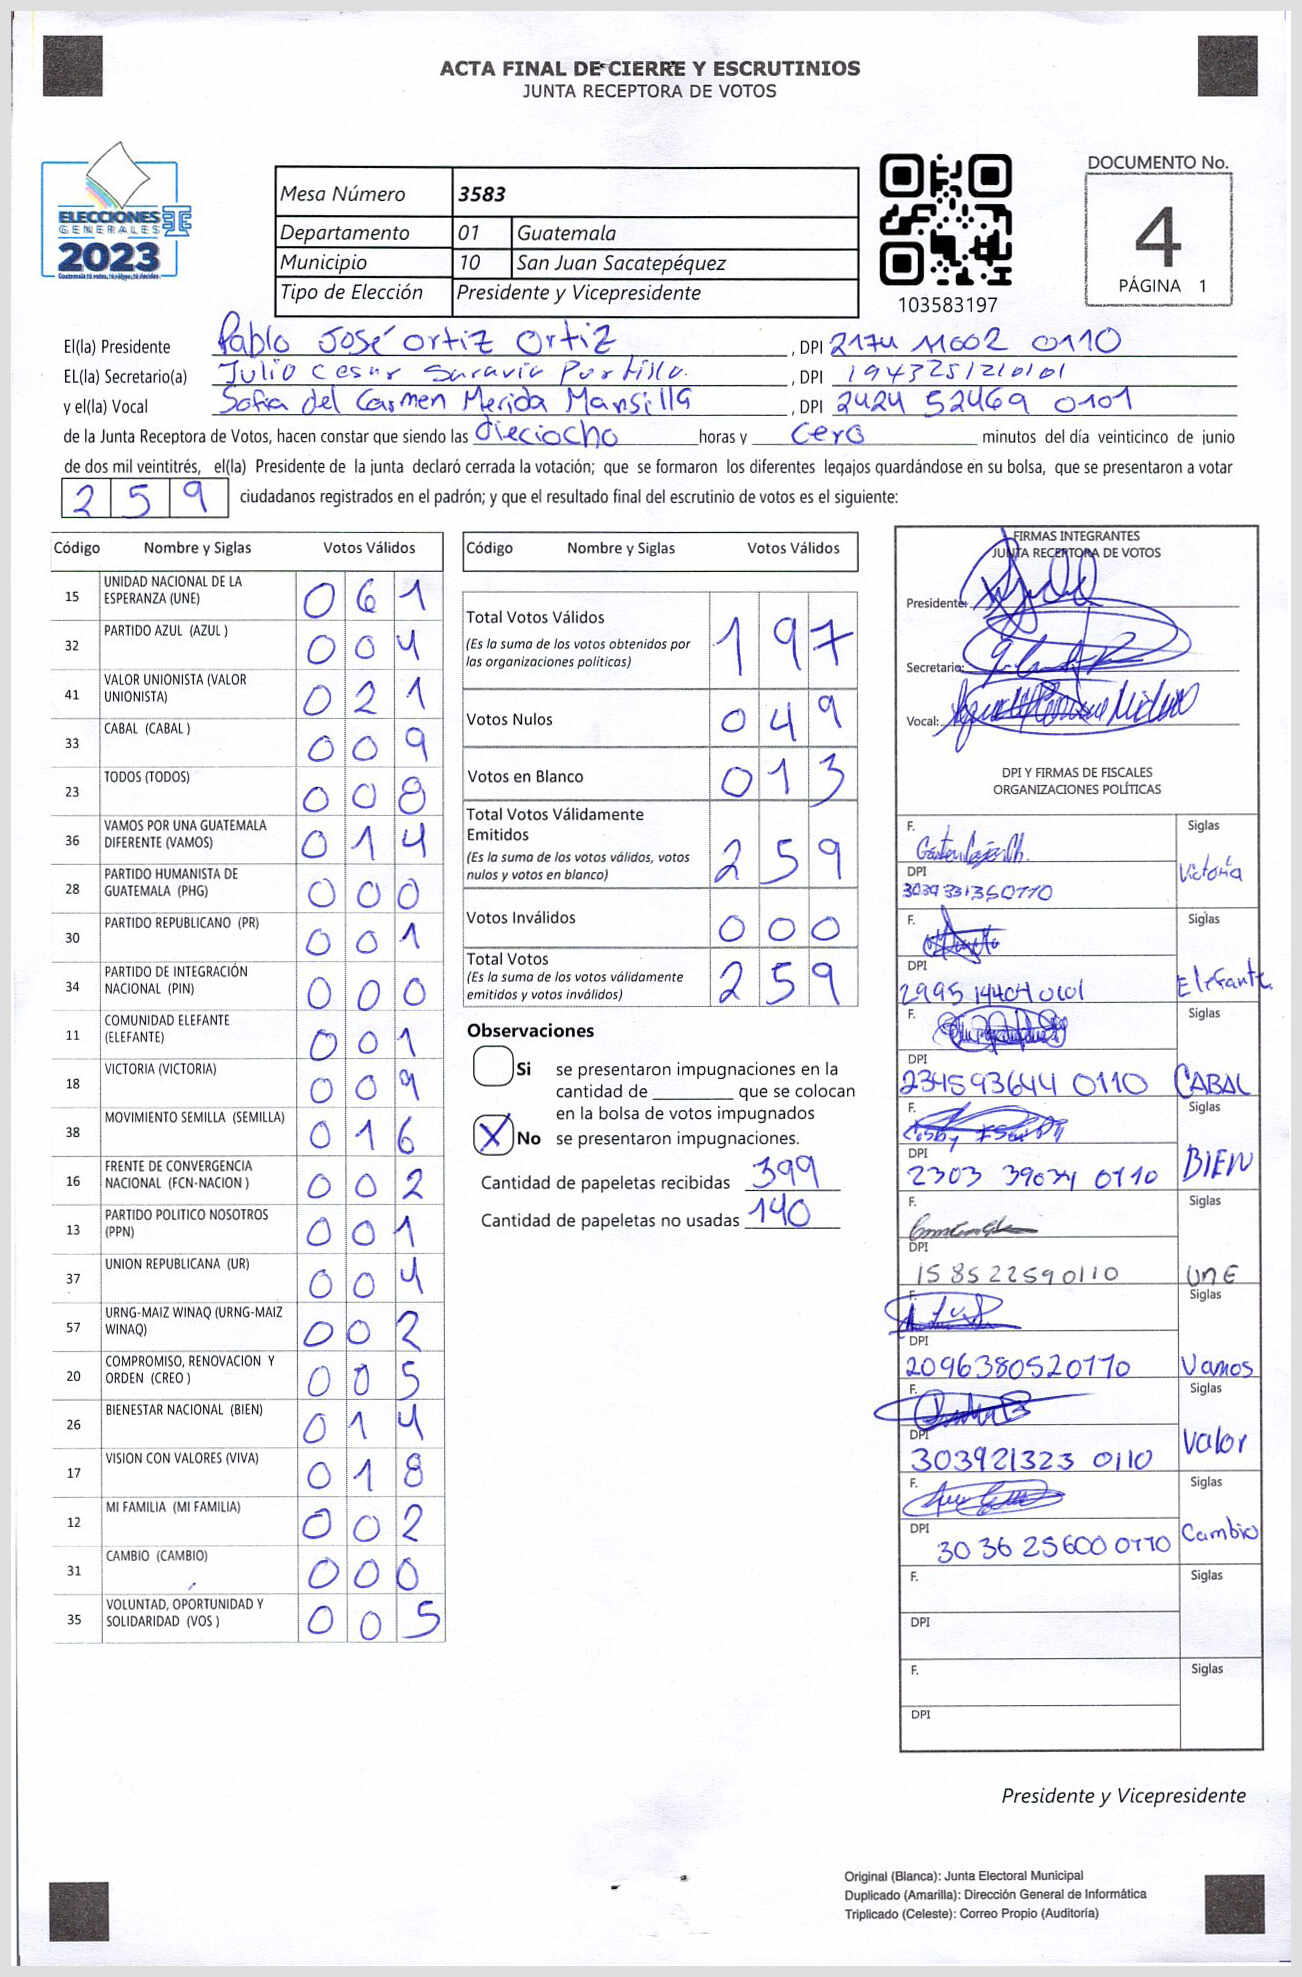 ACTA FINAL DE CIERRE Y ESCRUTINIOS
JUNTA RECEPTORA DE VOTOS
ELECCIONES
GENERALES
2023
Mesa Número 3583
Departamento 01 Guatemala
Municipio 10 San Juan Sacatepéquez
Tipo de Elección Presidente y Vicepresidente
103583197
DOCUMENTO No.
4
PÁGINA 1
El(la) Presidente Pablo José Ortiz Ortiz , DPI 2174 11002 0110
EL(la) Secretario(a) Julio Cesar Saravia Portillo. , DPI 1943251210101
y el(la) Vocal Sofia del Carmen Merida Mansilla , DPI 2424 52469 0101
de la Junta Receptora de Votos, hacen constar que siendo las dieciocho horas y cero minutos del día veinticinco de junio
de dos mil veintitrés, el(la) Presidente de la junta declaró cerrada la votación; que se formaron los diferentes legajos guardándose en su bolsa, que se presentaron a votar
2 5 9 ciudadanos registrados en el padrón; y que el resultado final del escrutinio de votos es el siguiente:
Código Nombre y Siglas Votos Válidos
15 UNIDAD NACIONAL DE LA ESPERANZA (UNE) 0 6 1
32 PARTIDO AZUL (AZUL ) 0 0 4
41 VALOR UNIONISTA (VALOR UNIONISTA) 0 2 1
33 CABAL (CABAL ) 0 0 9
23 TODOS (TODOS) 0 0 8
36 VAMOS POR UNA GUATEMALA DIFERENTE (VAMOS) 0 1 4
28 PARTIDO HUMANISTA DE GUATEMALA (PHG) 0 0 0
30 PARTIDO REPUBLICANO (PR) 0 0 1
34 PARTIDO DE INTEGRACIÓN NACIONAL (PIN) 0 0 0
11 COMUNIDAD ELEFANTE (ELEFANTE) 0 0 1
18 VICTORIA (VICTORIA) 0 0 9
38 MOVIMIENTO SEMILLA (SEMILLA) 0 1 6
16 FRENTE DE CONVERGENCIA NACIONAL (FCN-NACION ) 0 0 2
13 PARTIDO POLITICO NOSOTROS (PPN) 0 0 1
37 UNION REPUBLICANA (UR) 0 0 4
57 URNG-MAIZ WINAQ (URNG-MAIZ WINAQ) 0 0 2
20 COMPROMISO, RENOVACION Y ORDEN (CREO ) 0 0 5
26 BIENESTAR NACIONAL (BIEN) 0 1 4
17 VISION CON VALORES (VIVA) 0 1 8
12 MI FAMILIA (MI FAMILIA) 0 0 2
31 CAMBIO (CAMBIO) 0 0 0
35 VOLUNTAD, OPORTUNIDAD Y SOLIDARIDAD (VOS ) 0 0 5
Código Nombre y Siglas Votos Válidos
Total Votos Válidos 1 9 7
(Es la suma de los votos obtenidos por
las organizaciones políticas)
Votos Nulos 0 4 9
Votos en Blanco 0 1 3
Total Votos Válidamente
Emitidos 2 5 9
(Es la suma de los votos válidos, votos
nulos y votos en blanco)
Votos Inválidos 0 0 0
Total Votos 2 5 9
(Es la suma de los votos válidamente
emitidos y votos inválidos)
Observaciones
Si se presentaron impugnaciones en la
cantidad de ________ que se colocan
en la bolsa de votos impugnados
X No se presentaron impugnaciones.
Cantidad de papeletas recibidas 399
Cantidad de papeletas no usadas 140
FIRMAS INTEGRANTES
JUNTA RECEPTORA DE VOTOS
Presidente:
Secretario:
Vocal:
DPI Y FIRMAS DE FISCALES
ORGANIZACIONES POLÍTICAS
F. Siglas
DPI Victoria
3039 331350110
F. Siglas
DPI Elefante
2995 14404 0101
F. Siglas
DPI
234593644 0110 CABAL
F. Siglas
DPI BIEN
2303 39034 0110
F. Siglas
DPI
1585 22590110 UNE
F. Siglas
DPI
2096380520110 Vamos
F. Siglas
DPI Valor
303921323 0110
F. Siglas
DPI 3036 25600 0110 Cambio
F. Siglas
DPI
F. Siglas
DPI
Presidente y Vicepresidente
Original (Blanca): Junta Electoral Municipal
Duplicado (Amarilla): Dirección General de Informática
Triplicado (Celeste): Correo Propio (Auditoría)